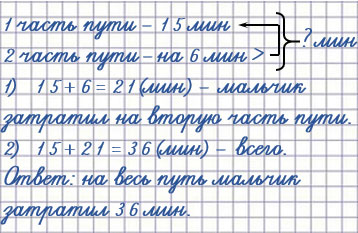 1 часть пути – 15 мин
2 часть пути – на 6 мин >
? мин
1) 15 + 6 = 21 (мин) – мальчик
затратил на вторую часть пути.
2) 15 + 21 = 36 (мин) – всего.
Ответ: на весь путь мальчик
затратил 36 мин.